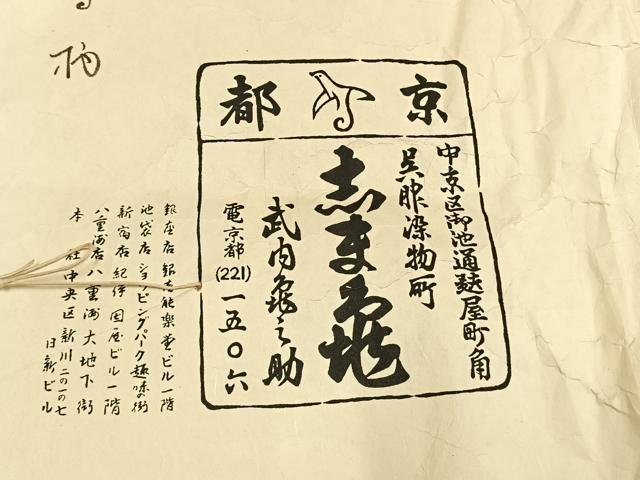 柄
京都
中京区御池通麸屋町角
呉服染物所
志ま亀
武内亀之助
電京都(221)一五〇六
銀座店 銀座能楽堂ビル一階
池袋店 ショッピングパーク趣味の街
新宿店 紀伊国屋ビル一階
八重洲店 八重洲大地下街
本社 中央区新川二の一の七
日新ビル